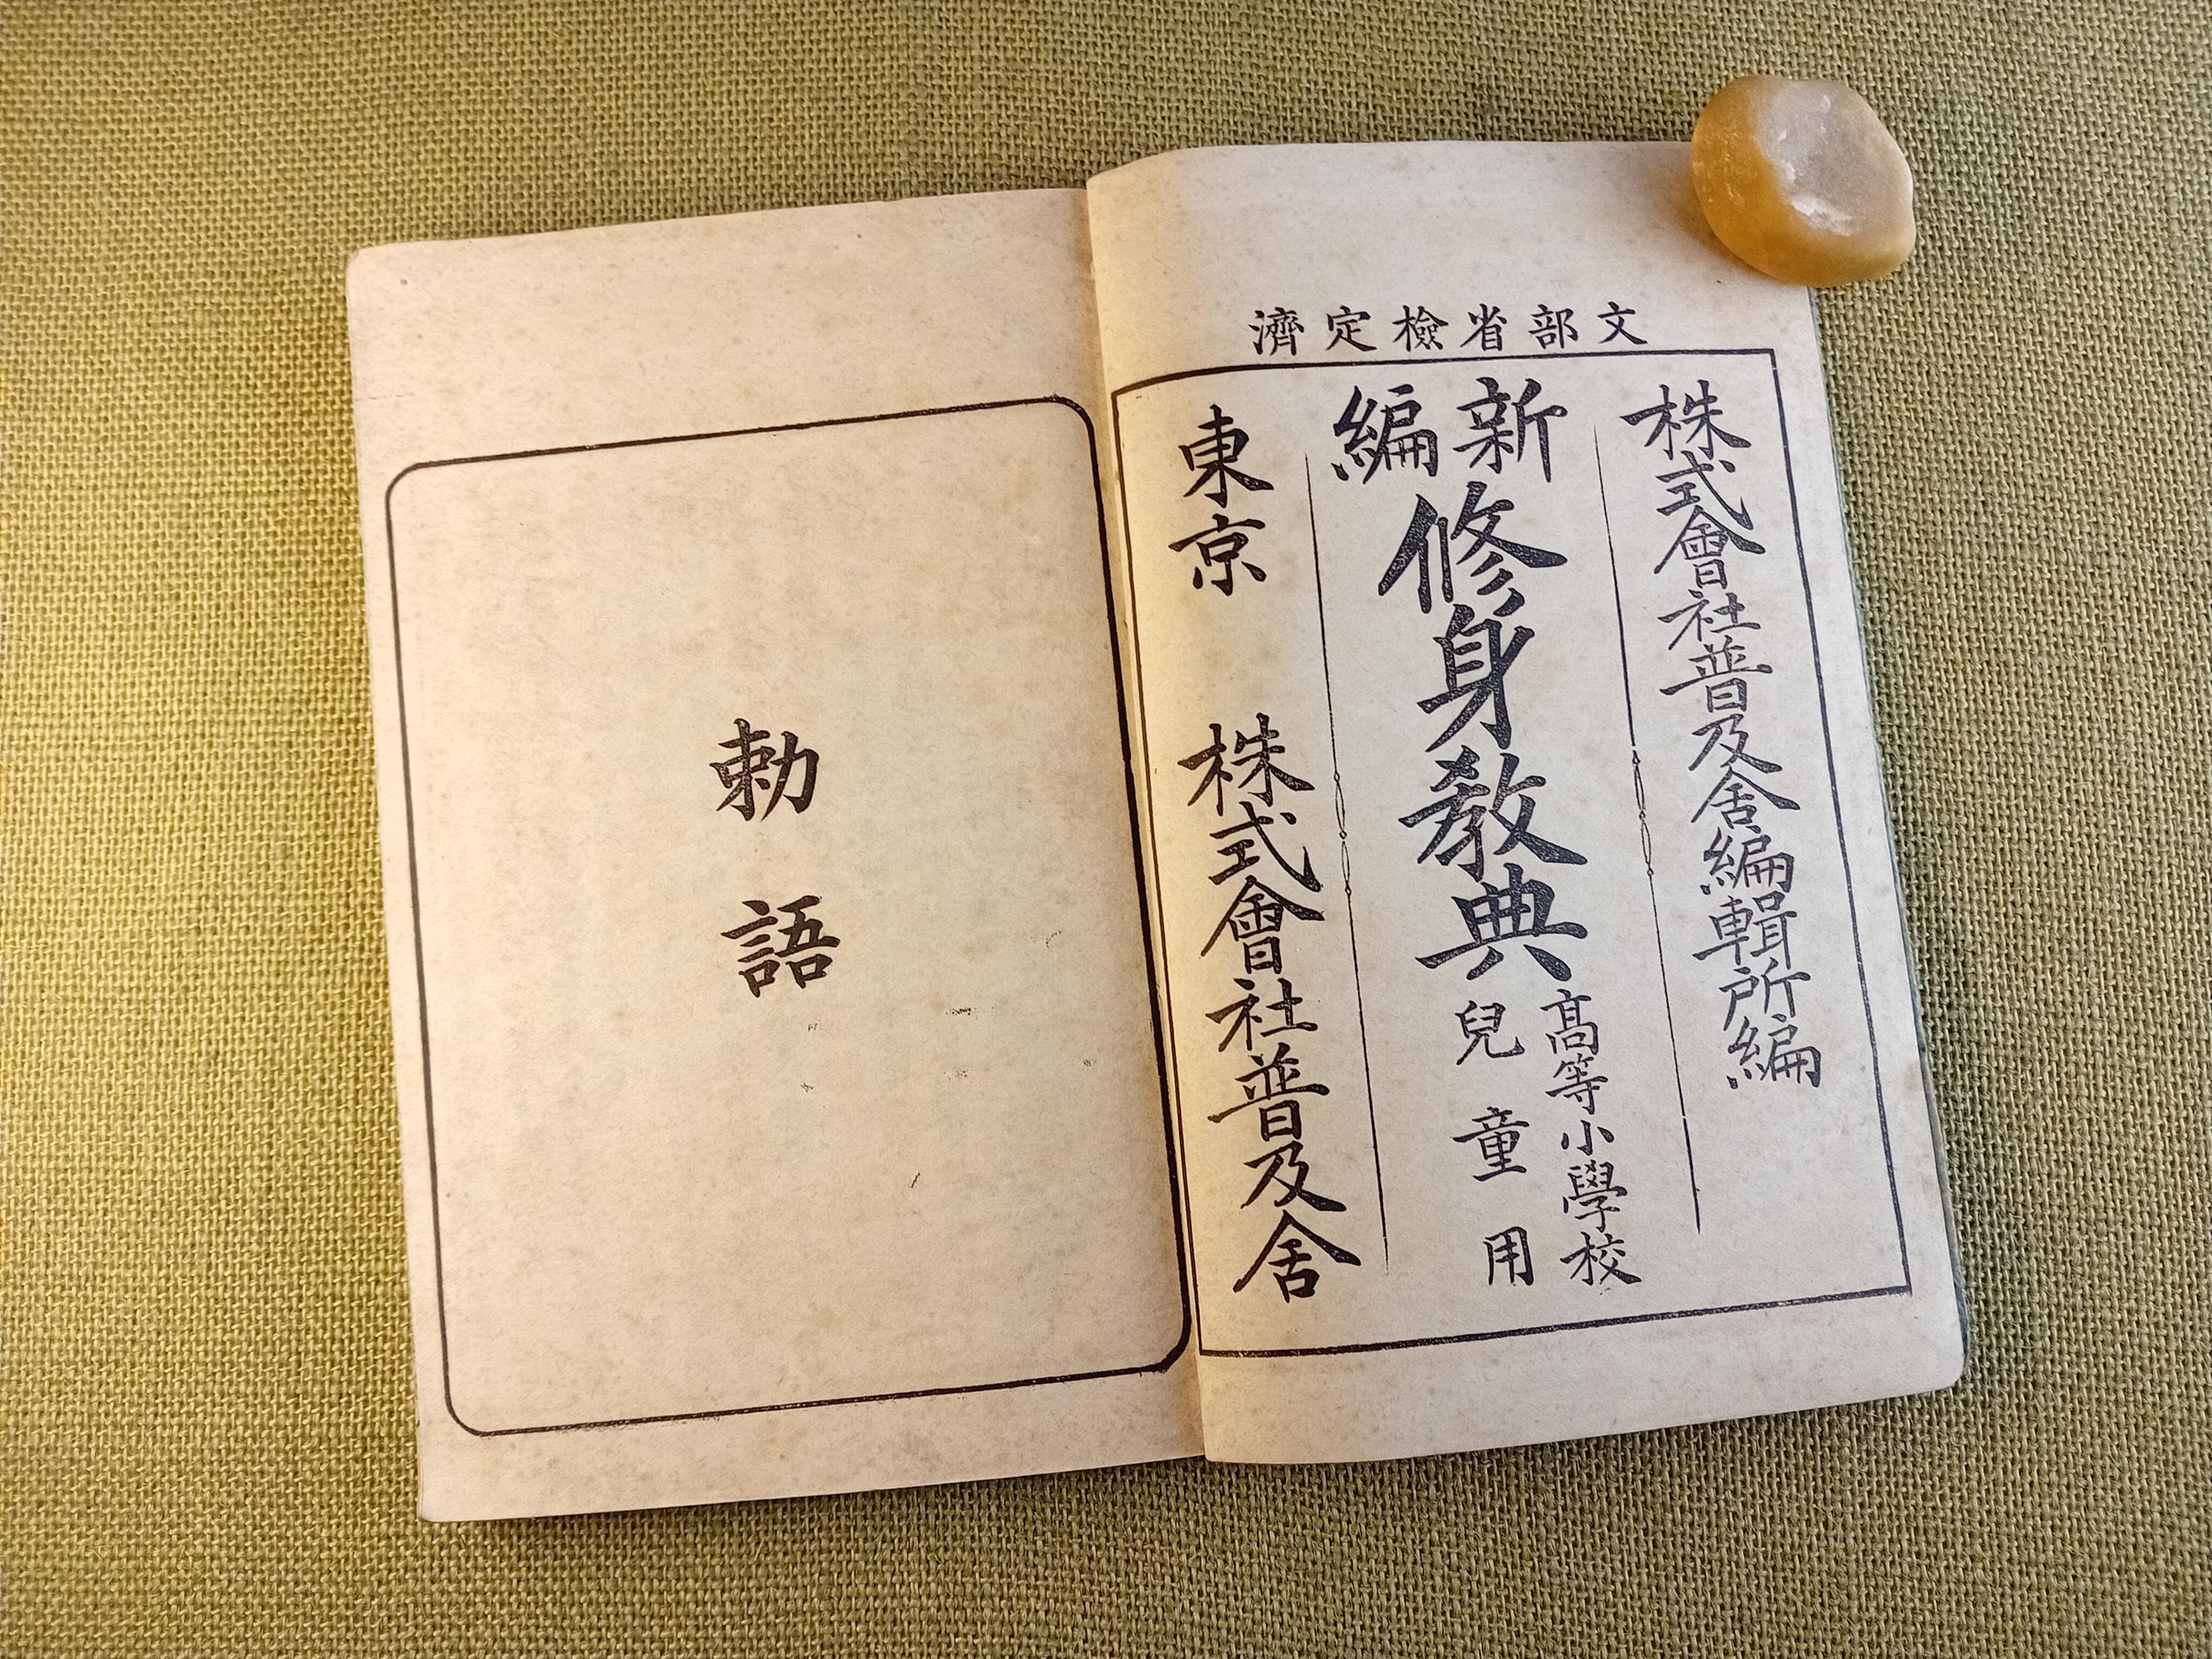 文部省檢定濟
株式會社普及舍編輯所編
新編
修身教典
高等小學校
兒童用
東京 株式會社普及舍
勅語